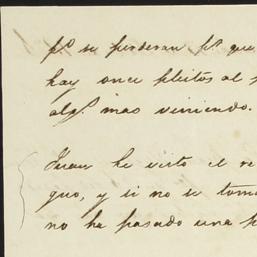 pª se perderan pª que
hay once pleitos al
algª mas viniendo.
Juan he visto el re
guo, y si no se toma
no ha pasado una p